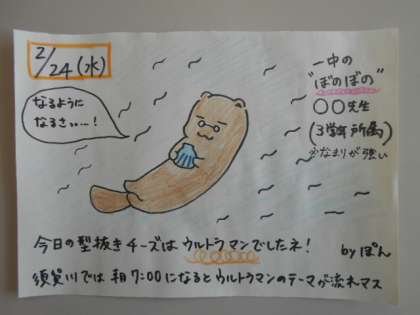 2/24(水)
一中の
"ぼのぼの"
〇〇先生
(3学年所属)
※なまりが強い
なるように
なるさ……!
今日の型抜きチーズはウルトラマンでしたネ!
by ぽん
須賀川では朝7:00になるとウルトラマンのテーマが流れマス